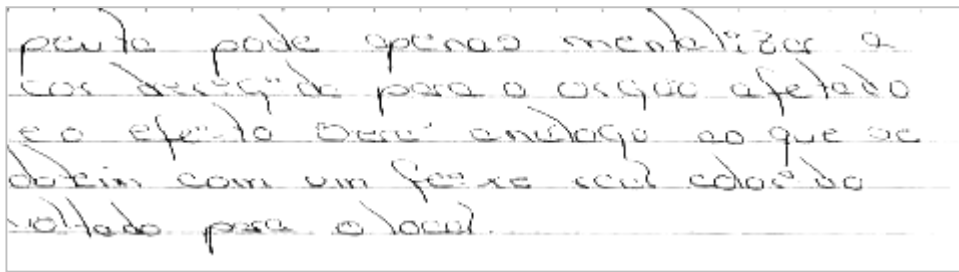 peuta pode apenas mentalizar a
cor dirigida para o orgão afetado
e o efeito será análogo ao que se
obtem com um feixe real colorido
voltado para o local.